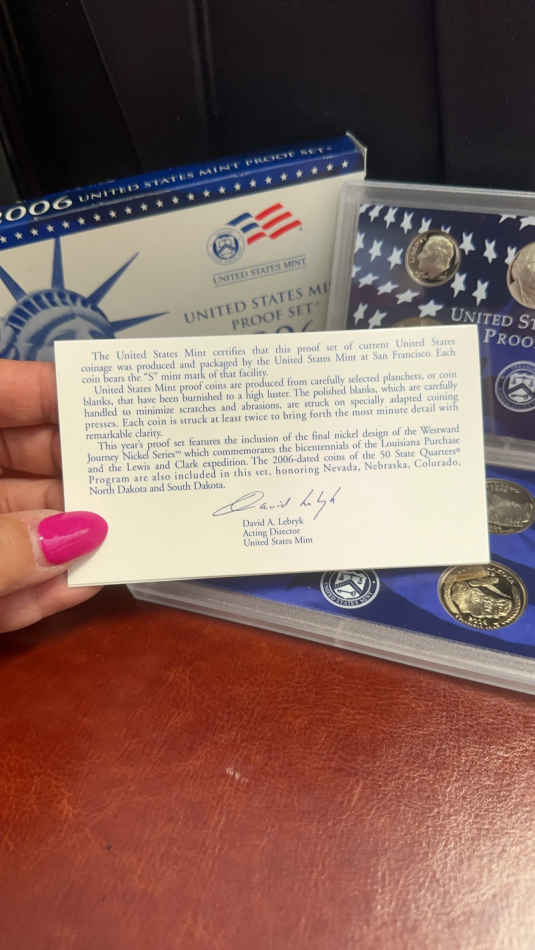 2006 UNITED STATES MINT PROOF SET
UNITED STATES MINT
UNITED STATES MI
PROOF SET
UNITED ST
PROO
The United States Mint certifies that this proof set of current United States
coinage was produced and packaged by the United States Mint at San Francisco. Each
coin bears the "S" mint mark of that facility.
United States Mint proof coins are produced from carefully selected planchets, or coin
blanks, that have been burnished to a high luster. The polished blanks, which are carefully
handled to minimize scratches and abrasions, are struck on specially adapted coining
presses. Each coin is struck at least twice to bring forth the most minute detail with
remarkable clarity.
This year's proof set features the inclusion of the final nickel design of the Westward
Journey Nickel Series™ which commemorates the bicentennials of the Louisiana Purchase
and the Lewis and Clark expedition. The 2006-dated coins of the 50 State Quarters®
Program are also included in this set, honoring Nevada, Nebraska, Colorado,
North Dakota and South Dakota.
David A. Lebryk
David A. Lebryk
Acting Director
United States Mint
UNITED STATES MINT